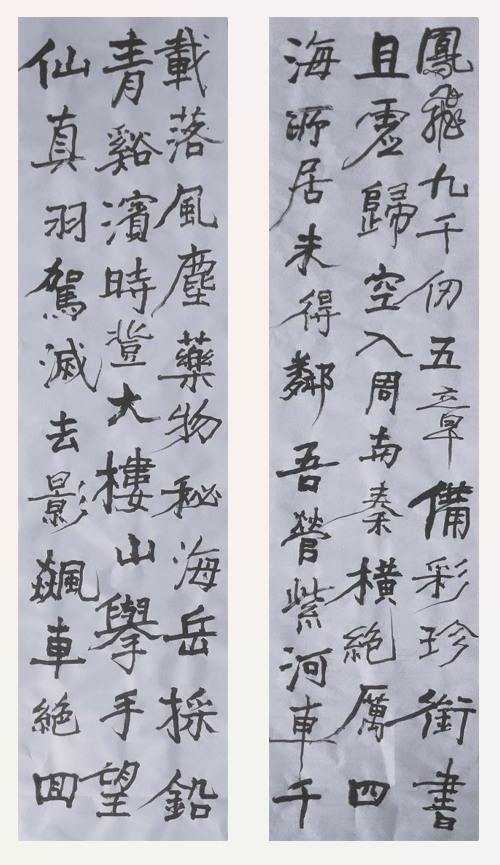 鳳飛九千仞五章備彩珍銜書
且虛歸空入周南秦橫絶厲四
海所居未得鄰吾營紫河車千
載落風塵藥物秘海岳採鉛
青谿濱時登大樓山舉手望
仙真羽駕滅去影飆車絶囬